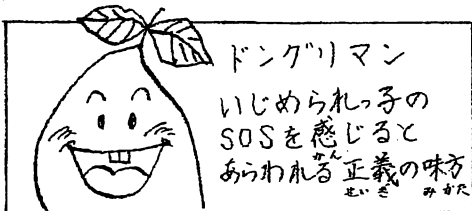 ドングリマン
いじめられっ子の
SOSを感じると
あらわれる正義の味方
かん
せいぎ みかた